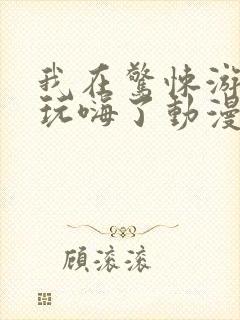 我在驚悚游
玩嗨了動漫
顧滾滾